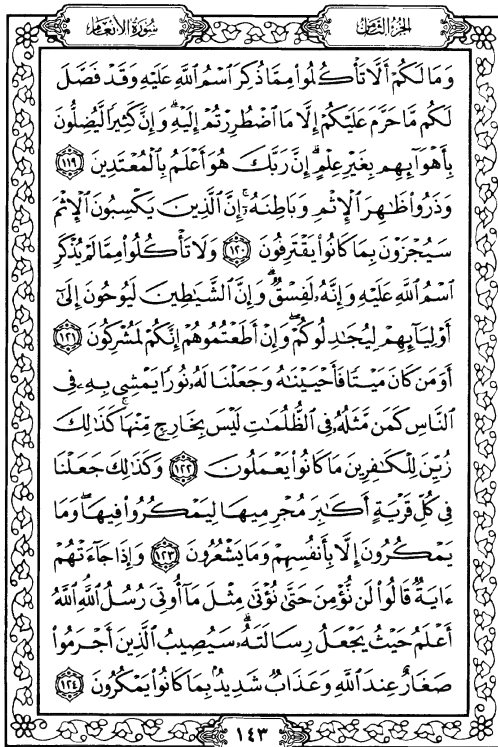 الجزء الثامن
سورة الأنعام
وَمَا لَكُمْ أَلَّا تَأْكُلُوا۟ مِمَّا ذُكِرَ ٱسْمُ ٱللَّهِ عَلَيْهِ وَقَدْ فَصَّلَ
لَكُم مَّا حَرَّمَ عَلَيْكُمْ إِلَّا مَا ٱضْطُرِرْتُمْ إِلَيْهِ ۗ وَإِنَّ كَثِيرًا لَّيُضِلُّونَ
بِأَهْوَآئِهِم بِغَيْرِ عِلْمٍ ۗ إِنَّ رَبَّكَ هُوَ أَعْلَمُ بِٱلْمُعْتَدِينَ ١١٩
وَذَرُوا۟ ظَٰهِرَ ٱلْإِثْمِ وَبَاطِنَهُۥٓ ۚ إِنَّ ٱلَّذِينَ يَكْسِبُونَ ٱلْإِثْمَ
سَيُجْزَوْنَ بِمَا كَانُوا۟ يَقْتَرِفُونَ ١٢٠ وَلَا تَأْكُلُوا۟ مِمَّا لَمْ يُذْكَرِ
ٱسْمُ ٱللَّهِ عَلَيْهِ وَإِنَّهُۥ لَفِسْقٌ ۗ وَإِنَّ ٱلشَّيَٰطِينَ لَيُوحُونَ إِلَىٰٓ
أَوْلِيَآئِهِمْ لِيُجَٰدِلُوكُمْ ۖ وَإِنْ أَطَعْتُمُوهُمْ إِنَّكُمْ لَمُشْرِكُونَ ١٢١
أَوَمَن كَانَ مَيْتًا فَأَحْيَيْنَٰهُ وَجَعَلْنَا لَهُۥ نُورًا يَمْشِى بِهِۦ فِى
ٱلنَّاسِ كَمَن مَّثَلُهُۥ فِى ٱلظُّلُمَٰتِ لَيْسَ بِخَارِجٍ مِّنْهَا ۚ كَذَٰلِكَ
زُيِّنَ لِلْكَٰفِرِينَ مَا كَانُوا۟ يَعْمَلُونَ ١٢٢ وَكَذَٰلِكَ جَعَلْنَا
فِى كُلِّ قَرْيَةٍ أَكَٰبِرَ مُجْرِمِيهَا لِيَمْكُرُوا۟ فِيهَا ۖ وَمَا
يَمْكُرُونَ إِلَّا بِأَنفُسِهِمْ وَمَا يَشْعُرُونَ ١٢٣ وَإِذَا جَآءَتْهُمْ
ءَايَةٌ قَالُوا۟ لَن نُّؤْمِنَ حَتَّىٰ نُؤْتَىٰ مِثْلَ مَآ أُوتِىَ رُسُلُ ٱللَّهِ ۘ ٱللَّهُ
أَعْلَمُ حَيْثُ يَجْعَلُ رِسَالَتَهُۥ ۗ سَيُصِيبُ ٱلَّذِينَ أَجْرَمُوا۟
صَغَارٌ عِندَ ٱللَّهِ وَعَذَابٌ شَدِيدٌۢ بِمَا كَانُوا۟ يَمْكُرُونَ ١٢٤
١٤٣